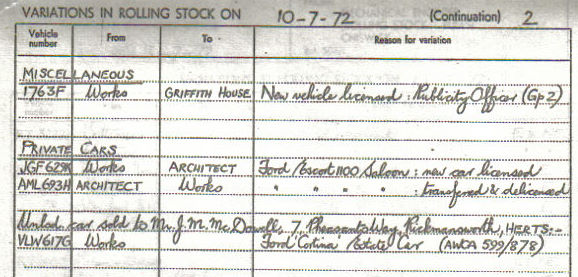 VARIATIONS IN ROLLING STOCK ON 10-7-72 (Continuation) 2
Vehicle number From To Reason for variation
MISCELLANEOUS
1763F Works GRIFFITH HOUSE New vehicle licensed: Publicity Officer (Gp 2)
PRIVATE CARS
JGF629K Works ARCHITECT Ford Escort 1100 Saloon: new car licensed
AML693H ARCHITECT Works " " " " : transferred & delicensed
car sold to Mr. J. M. McDowall, 7, Pheasants Way, Rickmansworth, HERTS:-
VLW617G Works Ford Cortina Estate Car (AWCA 599/878)